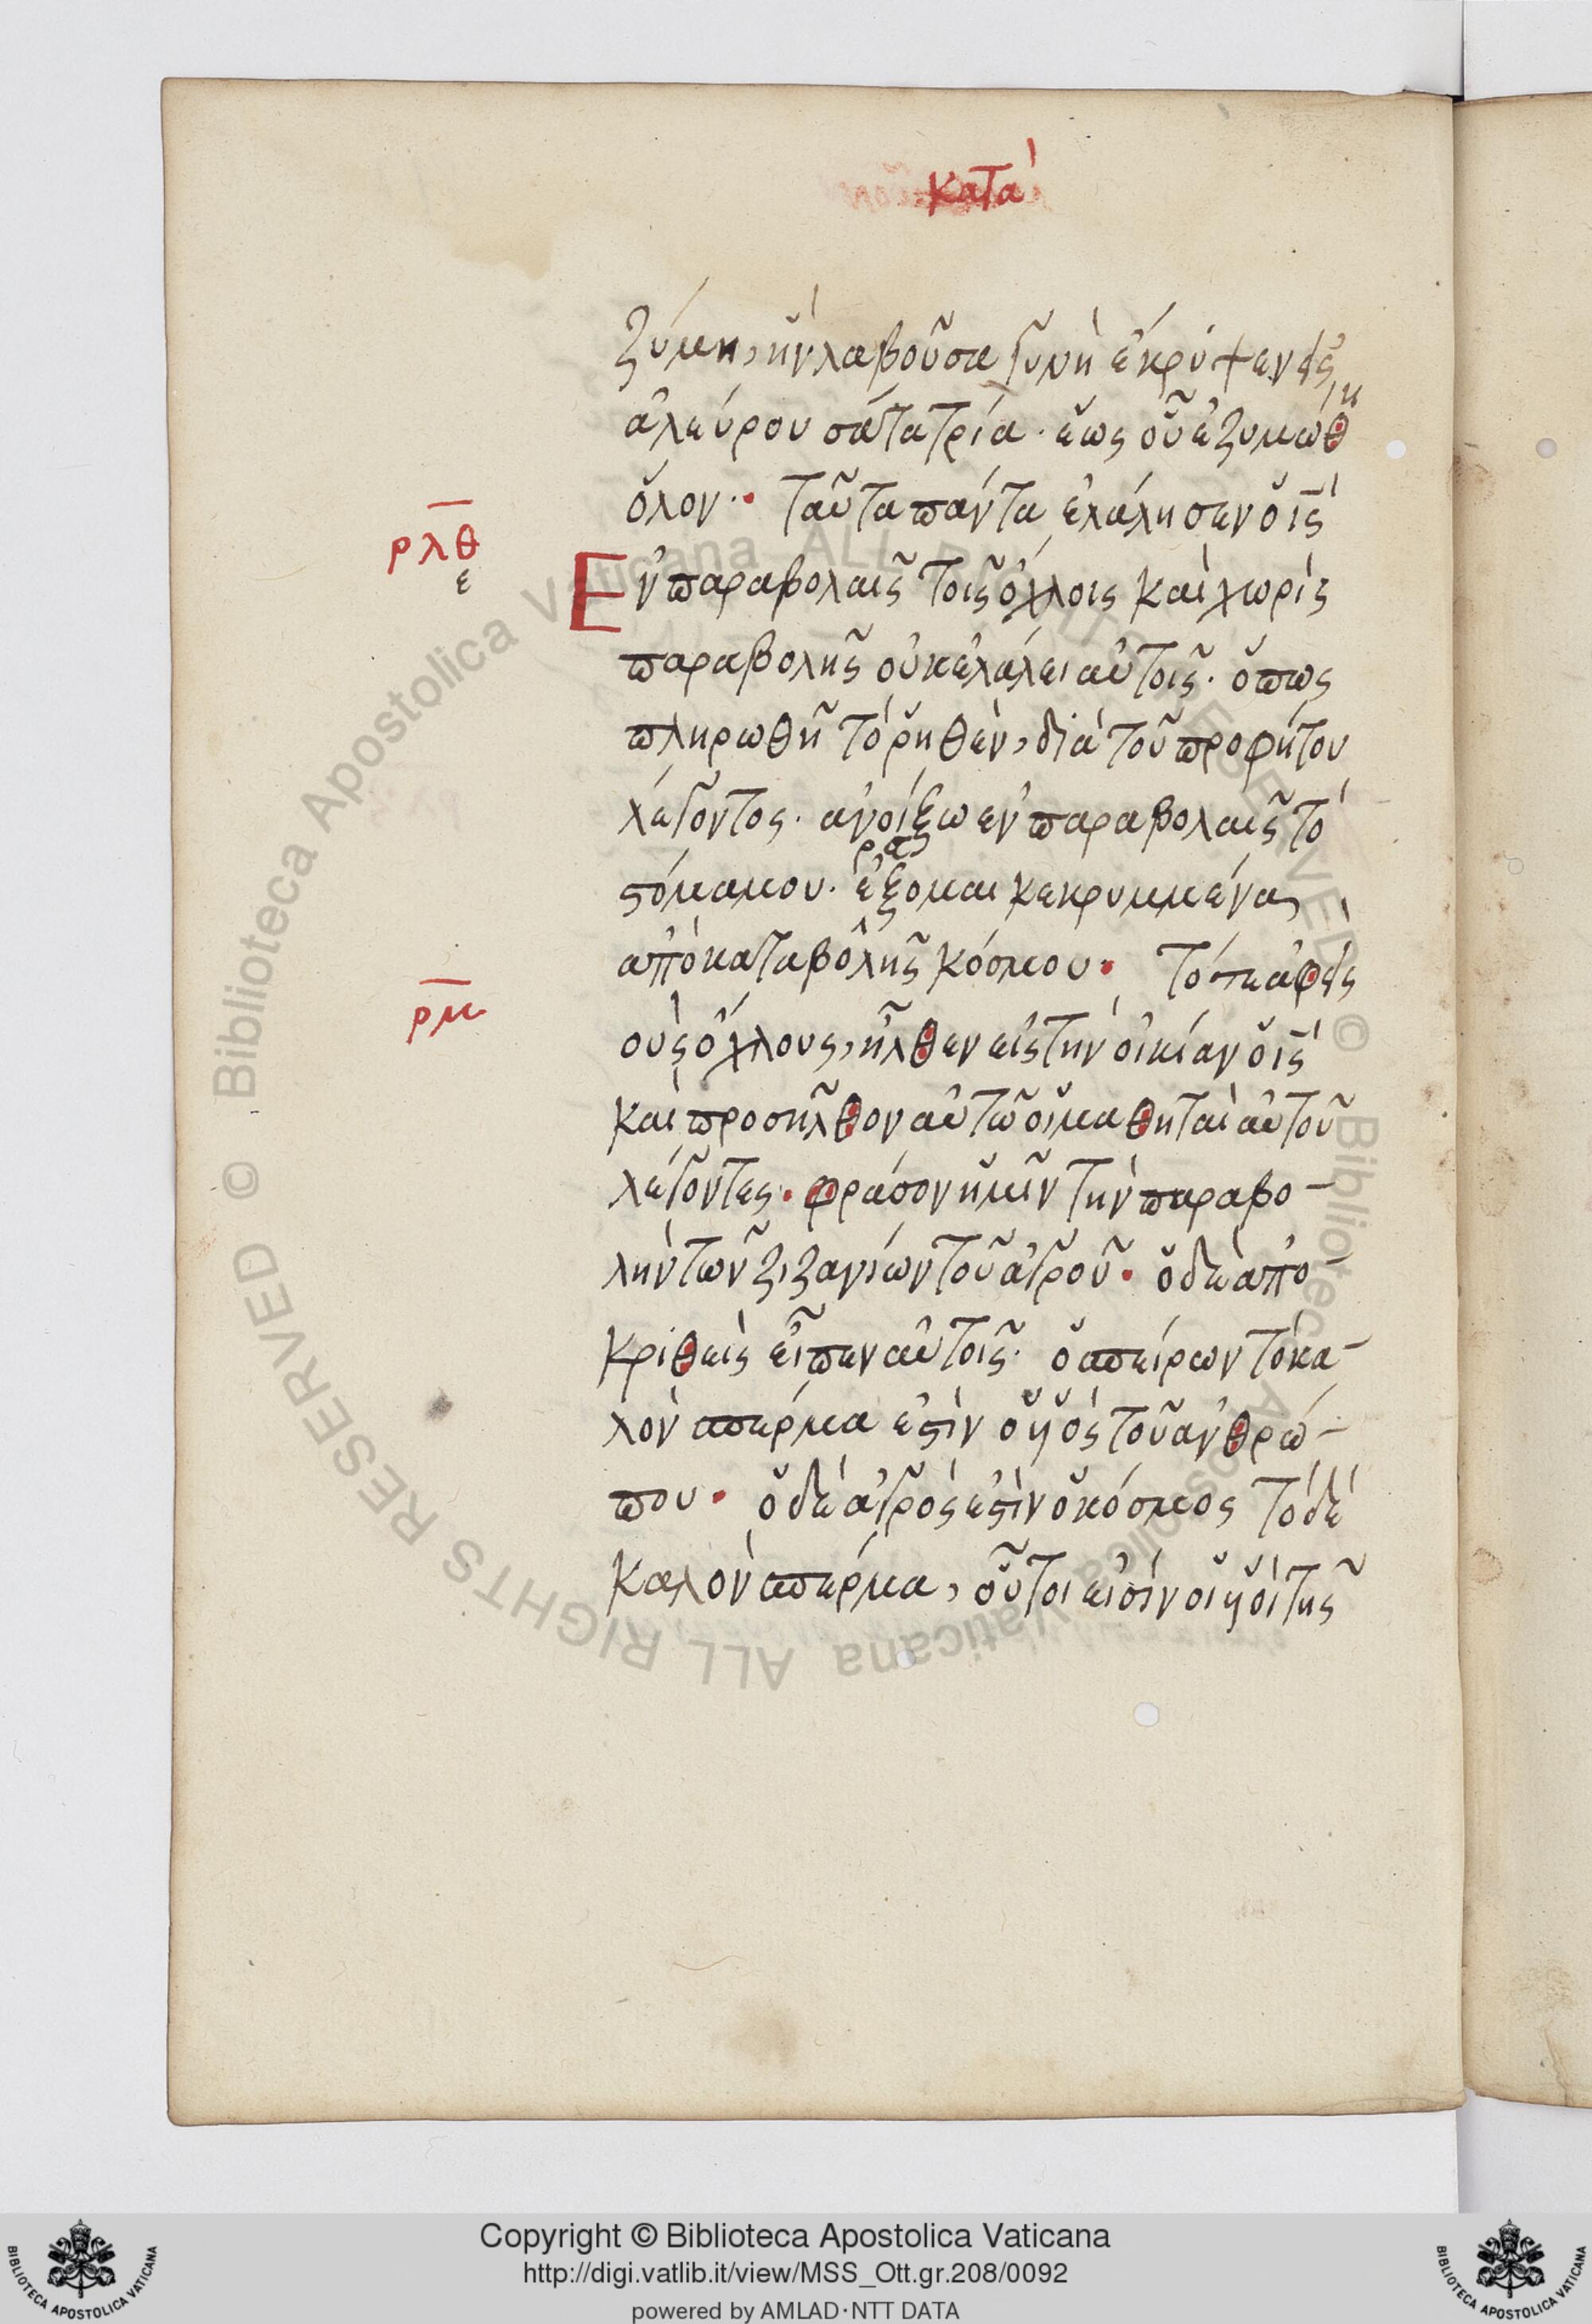 κατὰ
ζύμη, ἣν λαβοῦσα γυνὴ ἐκρύψεν εἰς
ἀλεύρου σάτα τρία. ἕως οὗ ἐζυμώθη
ὅλον. Ταῦτα πάντα ἐλάλησεν ὁ ις
ρλθ
ε
Ἐν παραβολαῖς τοῖς ὄχλοις καὶ χωρὶς
παραβολῆς οὐκ ἐλάλει αὐτοῖς. ὅπως
πληρωθῆ τὸ ῥηθὲν, διὰ τοῦ προφήτου
λέγοντος. ἀνοίξω ἐν παραβολαῖς τὸ
στόμα μου. ἐρεύξομαι κεκρυμμένα,
ἀπὸ καταβολῆς κόσμου. Τότε ἀφεὶς
ρμ
οὺς ὄχλους, ἦλθεν εἰς τὴν οἰκίαν ὁ ις
καὶ προσῆλθον αὐτῶ οἱ μαθηταὶ αὐτοῦ
λέγοντες. φράσον ἡμῖν τὴν παραβο-
λὴν τῶν ζιζανίων τοῦ ἀγροῦ. ὁ δὲ ἀπο-
κριθεὶς εἶπεν αὐτοῖς. ὁ σπείρων τὸ κα-
λὸν σπέρμα ἐστὶν ὁ υἱὸς τοῦ ἀνθρώ-
που. ὁ δὲ ἀγρὸς ἐστὶν ὁ κόσμος τὸ δὲ
καλὸν σπέρμα, οὗτοι εἰσίν οἱ υἱοὶ τῆς
Copyright © Biblioteca Apostolica Vaticana
http://digi.vatlib.it/view/MSS_Ott.gr.208/0092
powered by AMLAD·NTT DATA
BIBLIOTECA APOSTOLICA VATICANA
BIBLIOTECA APOSTOLICA VATICANA
© Biblioteca Apostolica Vaticana ALL RIGHTS RESERVED
© Biblioteca Apostolica Vaticana ALL RIGHTS RESERVED